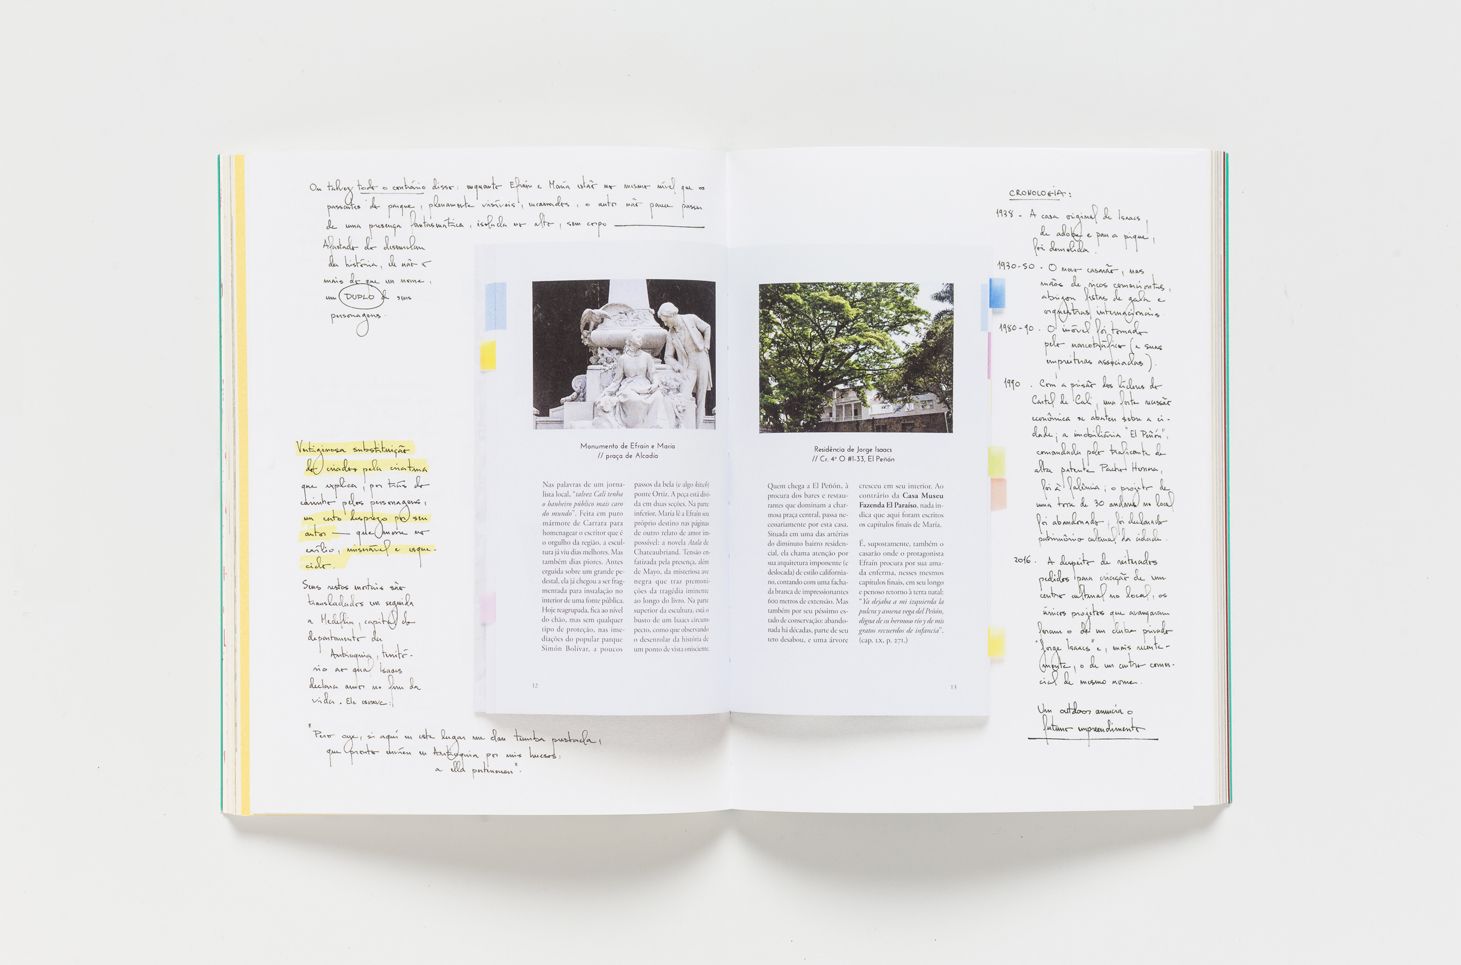 Ou talvez todo o contrário disso: enquanto Efraín e María estão no mesmo nível que os
passantes do parque, plenamente visíveis, encarnados, o autor não parece passar
de uma presença fantasmática, isolada no alto, sem corpo
Apartado do desenrolar
da história, ele não é
mais do que um nome,
um DUPLO de seus
personagens.
Vertiginosa substituição
do criador pela criatura
que explica, por trás do
carinho pelos personagens,
um certo desprezo por seu
autor — que morre no
exílio, miserável e esque-
cido.
Seus restos mortais são
transladados em seguida
a Medellín, capital do
departamento de
Antioquia, territó-
rio ao qual Isaacs
declara amor no fim da
vida. Ele escreve:
"Pero oye, si aquí en este lugar me dan tumba prestada,
que pronto envíen en Antioquia por mis huesos:
a ella pertenecen".
Monumento de Efraín e María
// praça de Alcadia
Nas palavras de um jorna-
lista local, "talvez Cali tenha
o banheiro público mais caro
do mundo". Feita em puro
mármore de Carrara para
homenagear o escritor que é
o orgulho da região, a escul-
tura já viu dias melhores. Mas
também dias piores. Antes
erguida sobre um grande pe-
destal, ela já chegou a ser frag-
mentada para instalação no
interior de uma fonte pública.
Hoje reagrupada, fica ao nível
do chão, mas sem qualquer
tipo de proteção, nas ime-
diações do popular parque
Simón Bolívar, a poucos
passos da bela (e algo kitsch)
ponte Ortiz. A peça está divi-
dida em duas seções. Na parte
inferior, María lê a Efraín seu
próprio destino nas páginas
de outro relato de amor im-
possível: a novela Atala de
Chateaubriand. Tensão en-
fatizada pela presença, dèm
de Mayo, da misteriosa ave
negra que traz premoni-
ções da tragédia iminente
ao longo do livro. Na parte
superior da escultura, está o
busto de um Isaacs circuns-
pecto, como que observando
o desenrolar da história de
um ponto de vista onisciente.
12
Residência de Jorge Isaacs
// Cr. 4ª O #1-33, El Peñón
Quem chega a El Peñón, à
procura dos bares e restau-
rantes que dominam a char-
mosa praça central, passa ne-
cessariamente por esta casa.
Situada em uma das artérias
do diminuto bairro residen-
cial, ela chama atenção por
sua arquitetura imponente (e
deslocada) de estilo california-
no, contando com uma facha-
da branca de impressionantes
600 metros de extensão. Mas
também por seu péssimo es-
tado de conservação: abando-
nada há décadas, parte de seu
teto desabou, e uma árvore
cresceu em seu interior. Ao
contrário da Casa Museu
Fazenda El Paraíso, nada in-
dica que aqui foram escritos
os capítulos finais de María.
É, supostamente, também o
casarão onde o protagonista
Efraín procura por sua ama-
da enferma, nesses mesmos
capítulos finais, em seu longo
e penoso retorno à terra natal:
"Yo dejaba a mi izquierda la
pulcra y amena vega del Peñón,
digna de su hermoso río y de mis
gratos recuerdos de infancia".
(cap. LX, p. 271.)
13
CRONOLOGIA:
1938 - A casa original de Isaacs,
de adobe e pau a pique,
foi demolida.
1930-50 - O novo casarão, nas
mãos de ricos comerciantes,
abrigou festas de gala e
orquestras internacionais
1980-90 - O imóvel foi tomado
pelo narcotráfico (e suas
empreiteiras associadas).
1990 - Com a prisão dos líderes do
Cartel de Cali, uma forte recessão
econômica se abateu sobre a ci-
dade; a imobiliária "El Peñón",
comandada pelo traficante de
alta patente Pacho Herrera,
foi à falência, o projeto de
uma torre de 30 andares no local
foi abandonado, foi declarado
patrimônio cultural da cidade.
2016 - A despeito de reiterados
pedidos para criação de um
centro cultural no local, os
únicos projetos que avançaram
foram o de um clube privado
"Jorge Isaacs" e, mais recente-
mente, o de um centro comer-
cial de mesmo nome.
Um outdoor anuncia o
futuro empreendimento